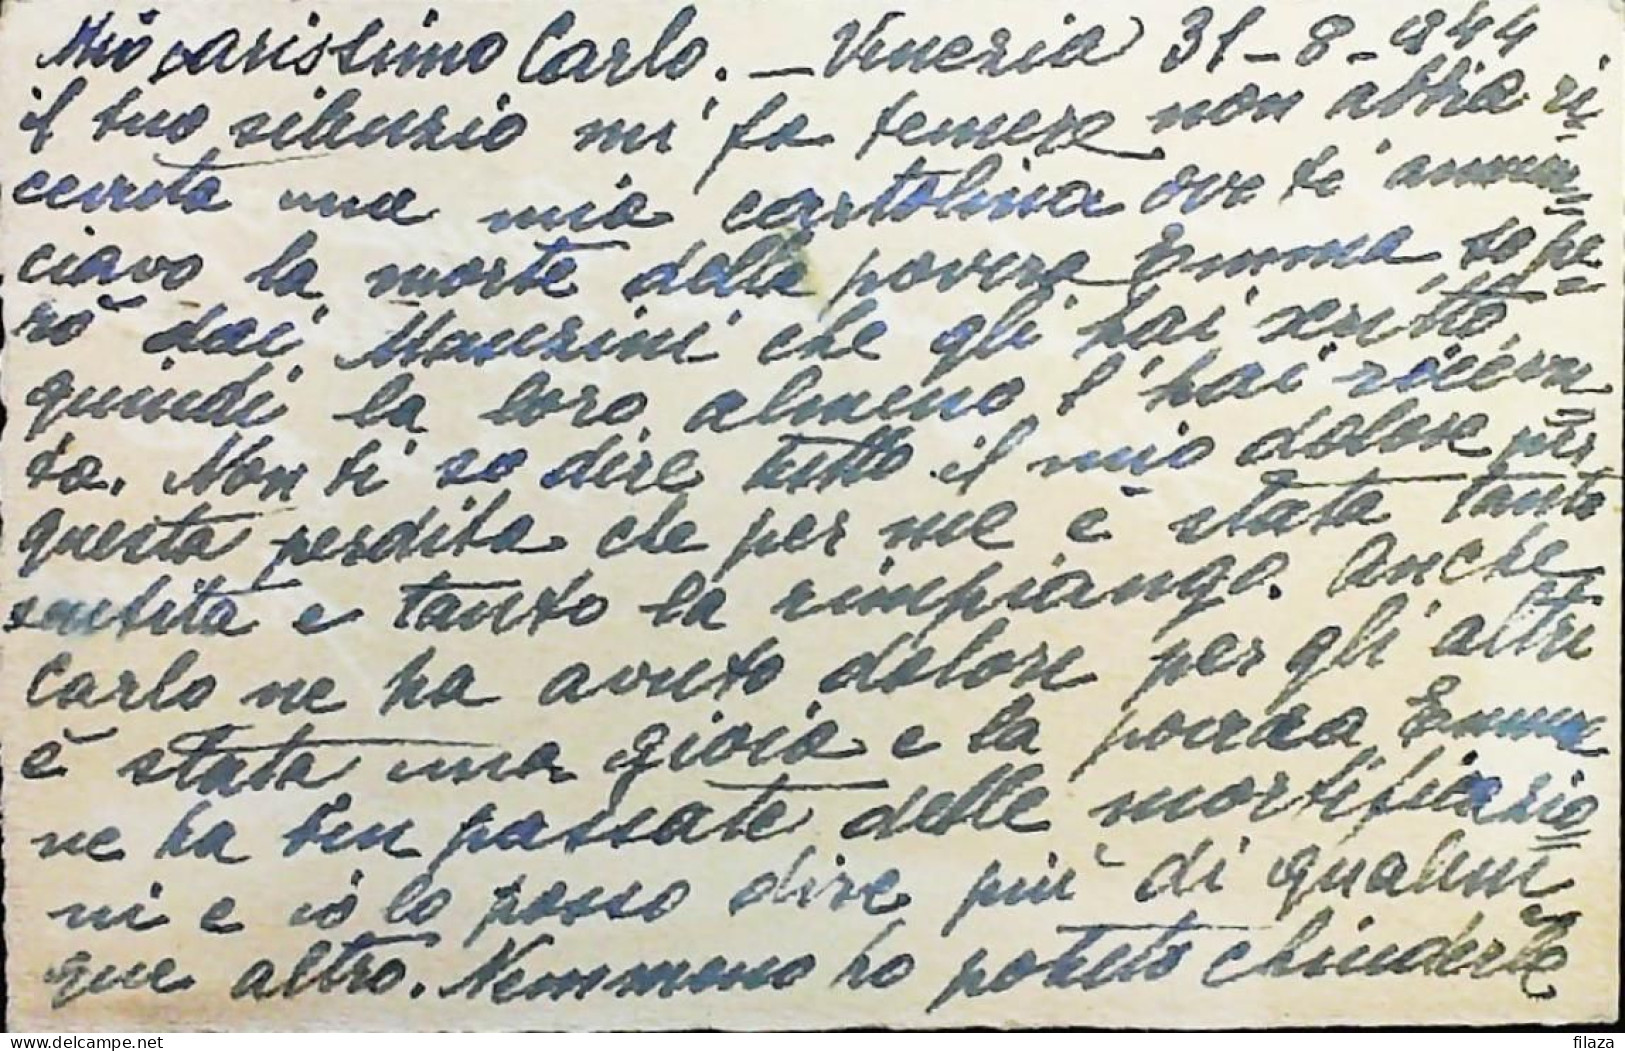 Mio carissimo Carlo. – Venezia 31-8-1944
il tuo silenzio mi fa temere non abbia ri=
cevuta una mia cartolina ove ti annun=
ciavo la morte della povera Emma so pe=
rò dai Maurini che gli hai scritto,
quindi la loro almeno l'hai ricevu=
ta. Non ti so dire tutto il mio dolore per
questa perdita che per me è stata tanto
sentita e tanto la rimpiango. Anche
Carlo ne ha avuto dolore per gli altri
è stata una gioia e la povera Emma
ne ha ben passate delle mortificazio=
ni e io lo posso dire più di qualun
que altro. Nemmeno ho potuto chiuderle
delcampe.net
filaza